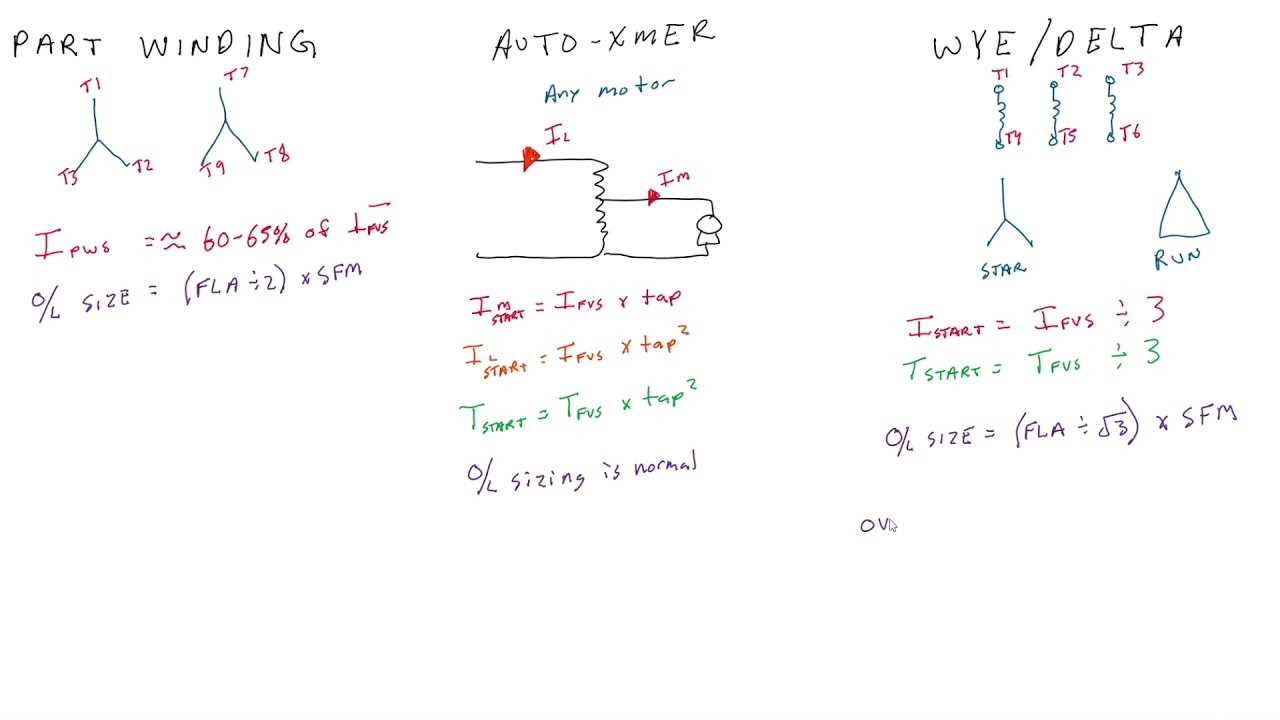 PART WINDING
T1
T7
T3
T2
T9
T8
I PWS = ≈ 60-65% of IFVS
O/L SIZE = (FLA ÷ 2) x SFM
AUTO-XMER
Any motor
IL
IM
I M START = IFVS x tap
I L START = IFVS x tap²
TSTART = TFVS x tap²
O/L sizing is normal
WYE/DELTA
T1 T2 T3
T4 T5 T6
STAR
RUN
ISTART = IFVS ÷ 3
TSTART = TFVS ÷ 3
O/L SIZE = (FLA ÷ √3) x SFM
OV